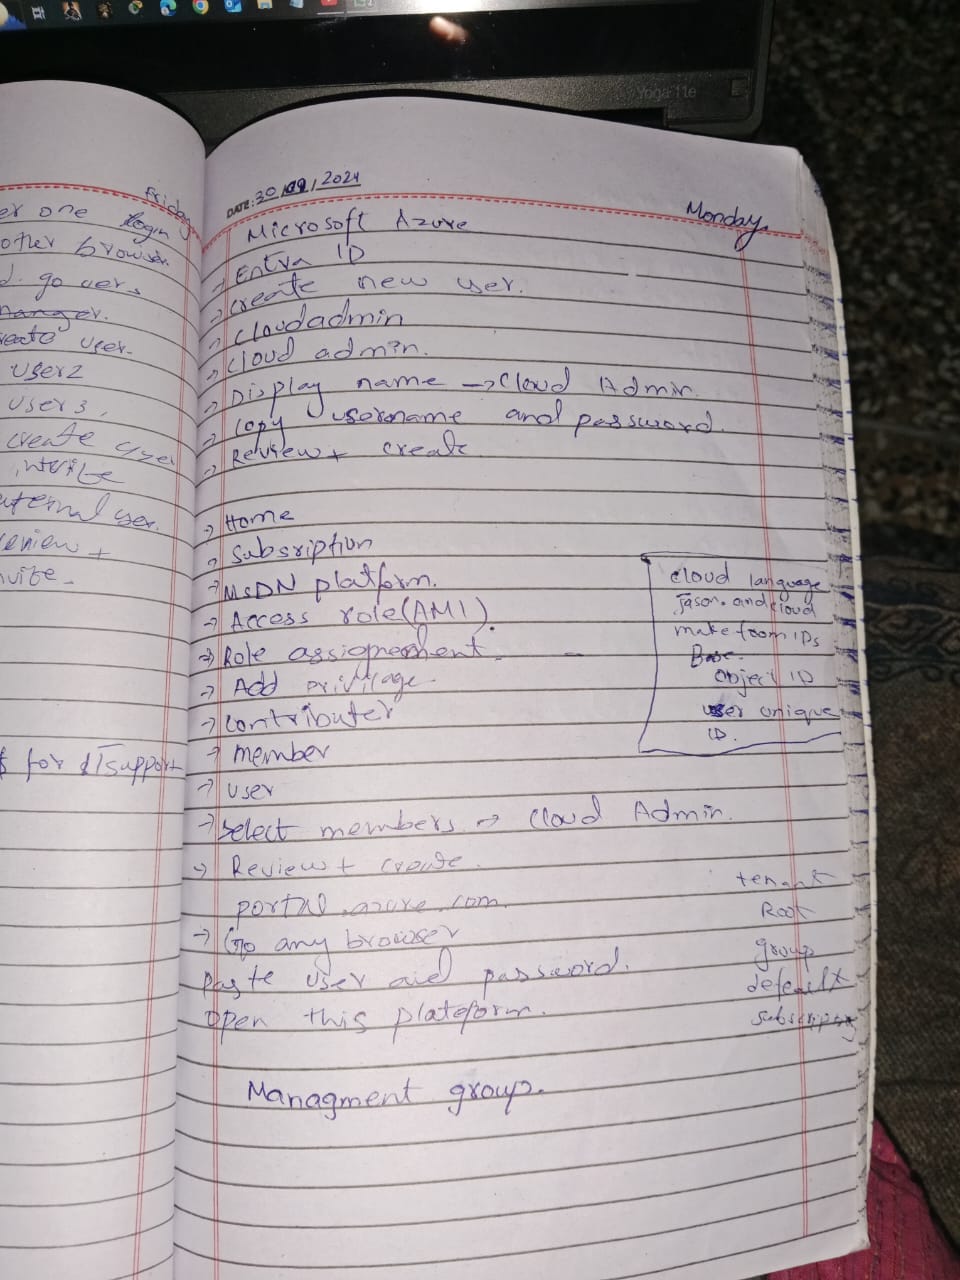 Yoga 11e
Friday
er one login
other browser
d. go vers
manger.
reate user-
user2
user3,
create user
invite
external user.
review +
nvite-
$ for d/support
DATE: 30/09/2024
Monday
Microsoft Azure
→ Entra ID
→ create new user.
→ cloudadmin
→ cloud admin.
→ Display name → Cloud Admin
→ copy username and password.
→ Review + create
→ Home
→ Subsription
→ MSDN platform.
→ Access role(AMI).
→ Role assignement.
→ Add privilage
→ contributer
→ member
→ user
→ select members → Cloud Admin.
→ Review + create.
portal.azure.com.
→ Go any browser
paste user and password.
open this plateform.
Managment group.
cloud language
Jason. and cloud
make from IDs
Base.
object ID
user unique
ID.
tenant
Root
group
default